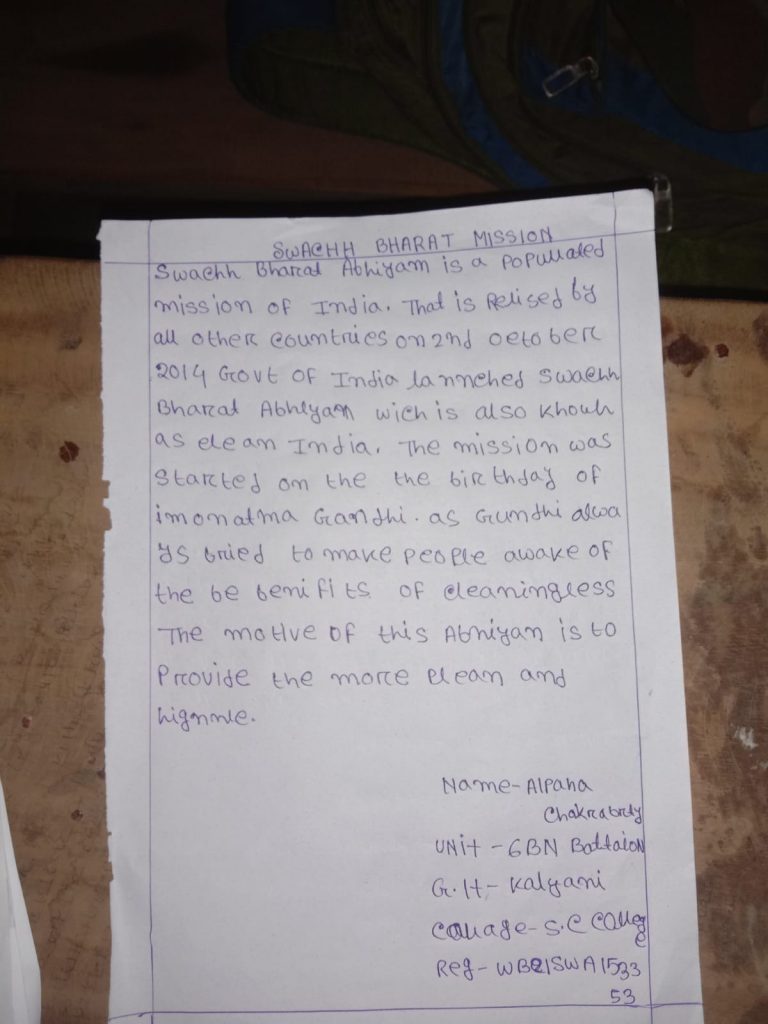 SWACHH BHARAT MISSION
Swachh Bharat Abhiyam is a populated
mission of India. That is Relised by
all other countries on 2nd october
2014 Govt of India lannched Swachh
Bharat Abhiyan wich is also khouh
as clean India. The mission was
started on the the birthday of
imonatma Gandhi. as Gundhi alwa
ys tried to make people awake of
the be benifits of cleaningless
The motive of this Abhiyan is to
Provide the more clean and
hignnie.
Name-Alpana
Chakrabrty
UNit-6BN Battaion
G.H-Kalyani
Collage-S.C Colleg
e
Reg-WB21SWA1533
53